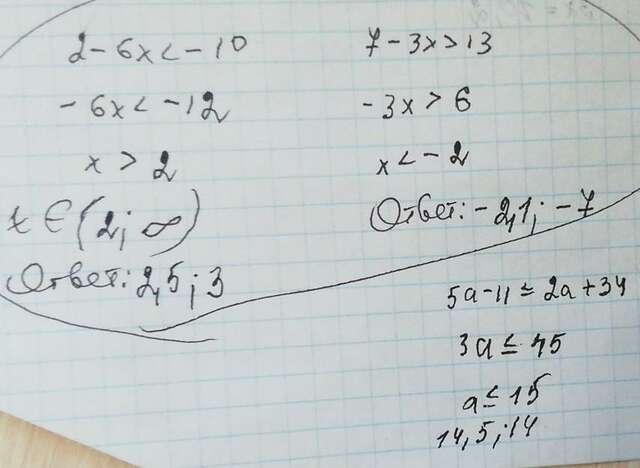 2 - 6x < -10
-6x < -12
x > 2
x ∈ (2; ∞)
Ответ: 2,5; 3
7 - 3x > 13
-3x > 6
x < -2
Ответ: -2,1; -7
5a - 11 ≤ 2a + 34
3a ≤ 45
a ≤ 15
14,5; 14